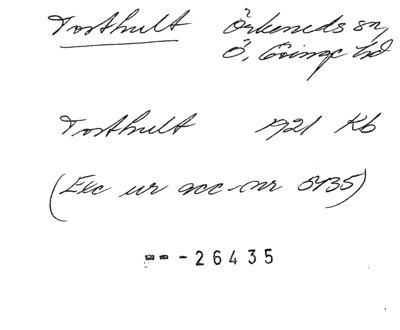 Tosthult Örkeneds sn,
Ö. Göinge hd
Tosthult 1921 Kb
(Exc ur acc-nr 5135)
---26435